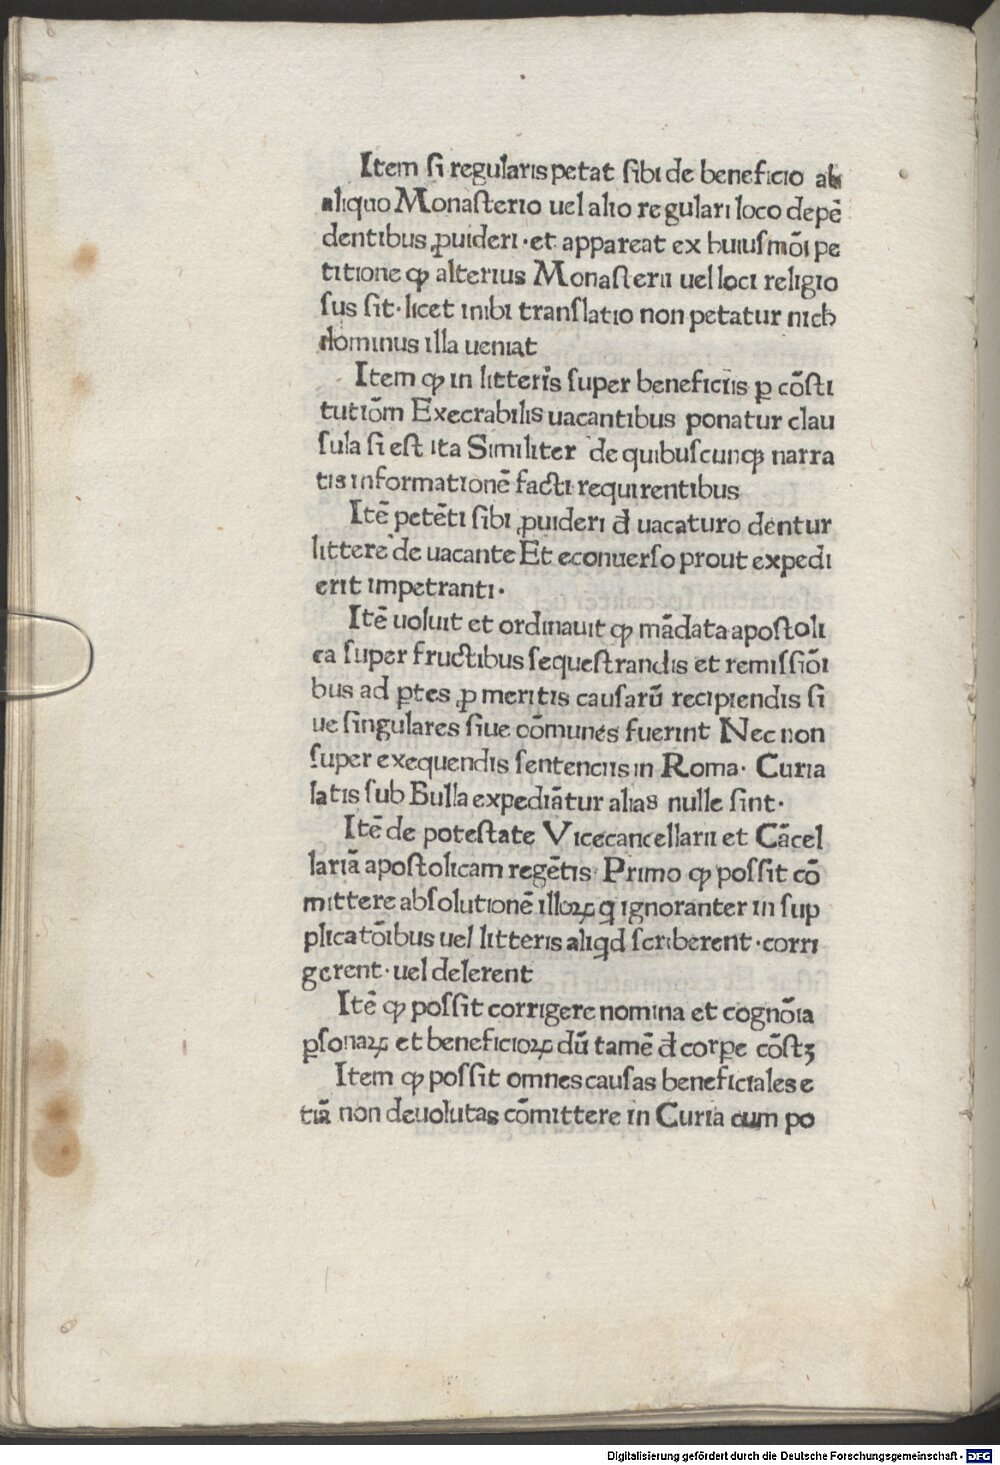 Item ſi regularis petat ſibi de beneficio ab
aliquo Monaſterio uel alio regulari loco depē
dentibus ꝓuideri · et appareat ex huiuſmōi pe
titione ꝙ alterius Monaſterii uel loci religio
ſus ſit · licet inibi tranſlatio non petatur nichͥ
dominus illa ueniat
Item ꝙ in litteris ſuper beneficiis ꝑ cōſti
tutiōm Execrabilis uacantibus ponatur clau
ſula ſi eſt ita Similiter de quibuſcunqꝫ narra
tis informationē facti requirentibus
Itē petēti ſibi ꝓuideri đ uacaturo dentur
littere de uacante Et econuerſo prout expedi
erit impetranti ·
Itē uoluit et ordinauit ꝙ mādata apoſtoli
ca ſuper fructibus ſequeſtrandis et remiſſiōi
bus ad ꝑtes ꝓ meritis cauſarū recipiendis ſi
ue ſingulares ſiue cōmunes fuerint Nec non
ſuper exequendis ſentenciis in Roma · Curia
latis ſub Bulla expediātur alias nulle ſint ·
Itē de poteſtate Vicecancellarii et Cācel
lariā apoſtolicam regētis Primo ꝙ poſſit cō
mittere abſolutionē illoꝝ ꝗ ignoranter in ſup
plicatōibus uel litteris aliꝗd ſcriberent · corri
gerent · uel delerent
Itē ꝙ poſſit corrigere nomina et cognōīa
ꝑſonaꝝ et beneficioꝝ dū tamē đ corꝑe cōſtꝫ
Item ꝙ poſſit omnes cauſas beneficiales e
tiā non deuolutas cōmittere in Curia cum po
Digitalisierung gefördert durch die Deutsche Forschungsgemeinschaft - DFG